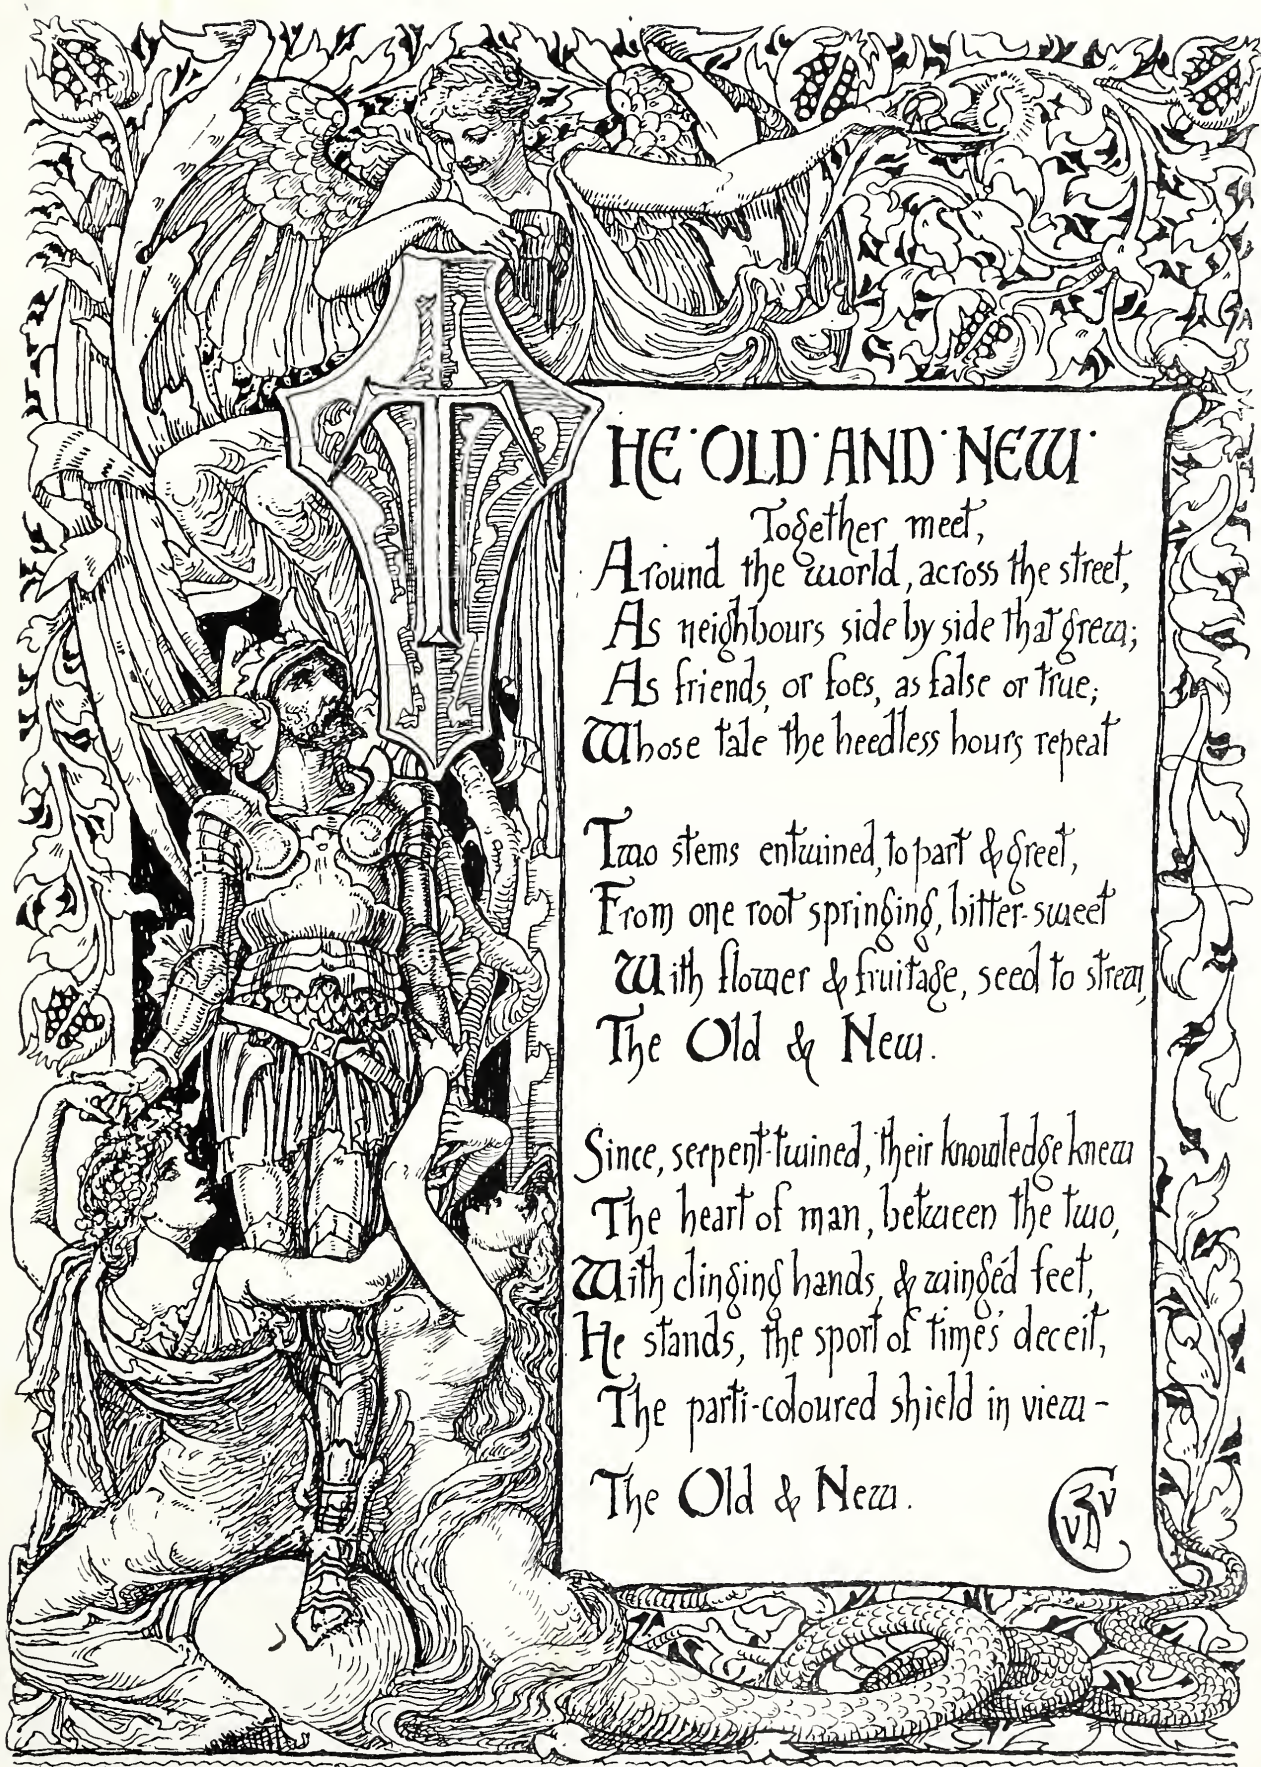 THE · OLD · AND · NEW ·
Together meet,
Around the world, across the street,
As neighbours side by side that grew;
As friends, or foes, as false or true;
Whose tale the heedless hours repeat
Two stems entwined, to part & greet,
From one root springing, bitter-sweet
With flower & fruitage, seed to strew,
The Old & New.
Since, serpent-twined, their knowledge knew
The heart of man, between the two,
With clinging hands, & wingéd feet,
He stands, the sport of time's deceit,
The parti-coloured shield in view -
The Old & New.